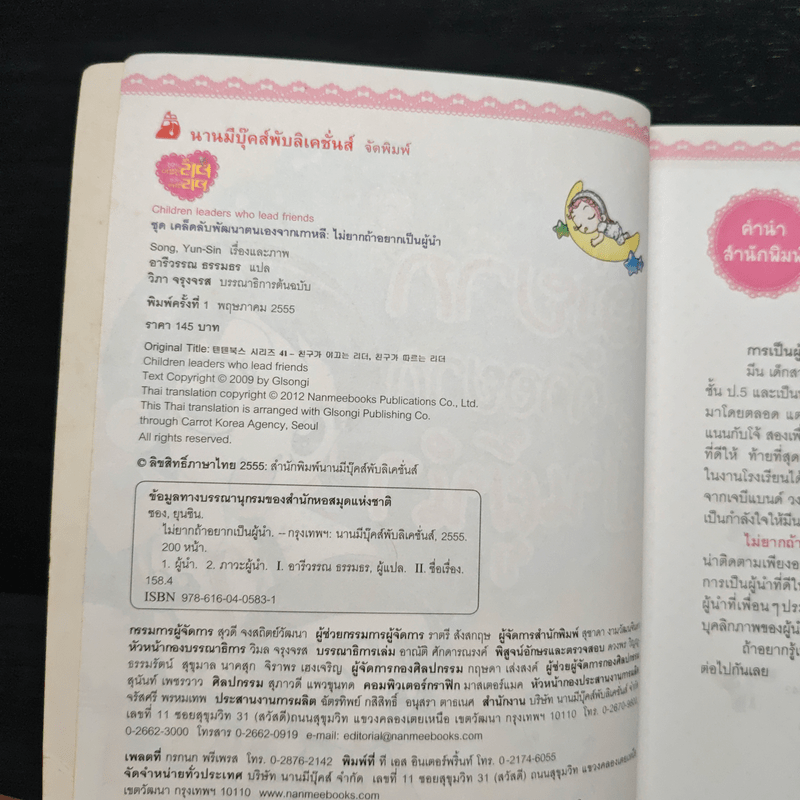 นานมีบุ๊คส์พับลิเคชั่นส์ จัดพิมพ์
Children leaders who lead friends
ชุด เคล็ดลับพัฒนาตนเองจากเกาหลี: ไม่ยากถ้าอยากเป็นผู้นำ
Song, Yun-Sin เรื่องและภาพ
อารีวรรณ ธรรมธร แปล
วิภา จรุงจรส บรรณาธิการต้นฉบับ
พิมพ์ครั้งที่ 1 พฤษภาคม 2555
ราคา 145 บาท
Original Title: 텐텐북스 시리즈 41 – 친구가 이끄는 리더, 친구가 따르는 리더
Children leaders who lead friends
Text Copyright © 2009 by Glsongi
Thai translation copyright © 2012 Nanmeebooks Publications Co., Ltd.
This Thai translation is arranged with Glsongi Publishing Co.
through Carrot Korea Agency, Seoul
All rights reserved.
© ลิขสิทธิ์ภาษาไทย 2555: สำนักพิมพ์นานมีบุ๊คส์พับลิเคชั่นส์
ข้อมูลทางบรรณานุกรมของสำนักหอสมุดแห่งชาติ
ซอง, ยุนชิน.
ไม่ยากถ้าอยากเป็นผู้นำ. – กรุงเทพฯ: นานมีบุ๊คส์พับลิเคชั่นส์, 2555.
200 หน้า.
1. ผู้นำ. 2. ภาวะผู้นำ. I. อารีวรรณ ธรรมธร, ผู้แปล. II. ชื่อเรื่อง.
158.4
ISBN 978-616-04-0583-1
กรรมการผู้จัดการ สุวดี จงสถิตย์วัฒนา ผู้ช่วยกรรมการผู้จัดการ ราตรี สังสกฤษ ผู้จัดการสำนักพิมพ์ สุชาดา
หัวหน้ากองบรรณาธิการ วิมล จรุงจรส บรรณาธิการเล่ม อาณัติ ศักดารณรงค์ พิสูจน์อักษรและตรวจสอบ ดวงพร
ธรรมรัตน์ สุขุมาล นาคสุก จิราพร เฮงเจริญ ผู้จัดการกองศิลปกรรม กฤษดา เส่งสงค์ ผู้ช่วยผู้จัดการกองศิลปกรรม
สุนันท์ เพชรวาว ศิลปกรรม สุภาวดี แพวขุนทด คอมพิวเตอร์กราฟิก มาสเตอร์แมค หัวหน้ากองประสานงานการผลิต
จรัสศรี พรหมเทพ ประสานงานการผลิต ฉัตรทิพย์ กสิสิทธิ์ อนุสรา ตาธเนศ สำนักงาน บริษัท นานมีบุ๊คส์พับลิเคชั่นส์ จำกัด
เลขที่ 11 ซอยสุขุมวิท 31 (สวัสดี)ถนนสุขุมวิท แขวงคลองเตยเหนือ เขตวัฒนา กรุงเทพฯ 10110 โทร.
0-2662-3000 โทรสาร 0-2662-0919 e-mail: editorial@nanmeebooks.com
เพลตที่ กรกนก พรีเพรส โทร. 0-2876-2142 พิมพ์ที่ ที เอส อินเตอร์พริ้นท์ โทร. 0-2174-6055
จัดจำหน่ายทั่วประเทศ บริษัท นานมีบุ๊คส์ จำกัด เลขที่ 11 ซอยสุขุมวิท 31 (สวัสดี) ถนนสุขุมวิท แขวงคลองเตยเหนือ
เขตวัฒนา กรุงเทพฯ 10110 www.nanmeebooks.com
คำนำ
สำนักพิมพ์
การเป็นผู้
มีน เด็กสา
ชั้น ป.5 และเป็น
มาโดยตลอด แต่
แนนกับโจ้ สองเพื่
ที่ดีให้ ท้ายที่สุด
ในงานโรงเรียนได้
จากเจบีแบนด์ วง
เป็นกำลังใจให้มีน
ไม่ยากถ้า
น่าติดตามเพียงอ
การเป็นผู้นำที่ดีใ
ผู้นำที่เพื่อนๆ ประ
บุคลิกภาพของผู้นำ
ถ้าอยากรู้
ต่อไปกันเลย